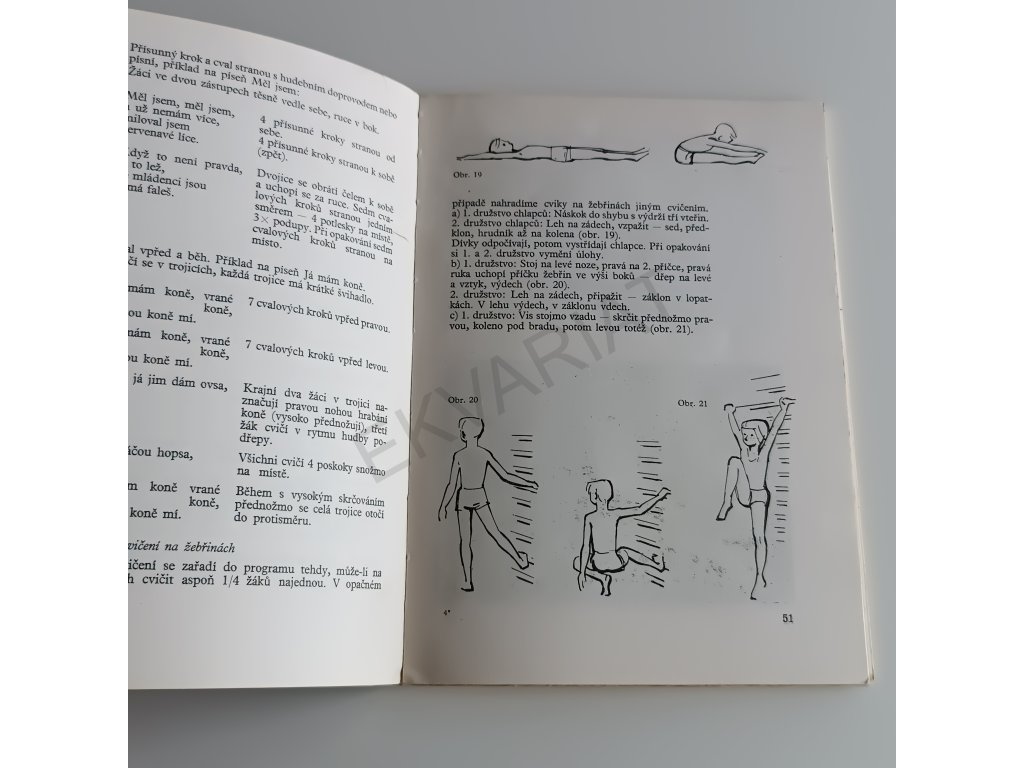 Přísunný krok a cval stranou s hudebním doprovodem nebo
písní, příklad na píseň Měl jsem:
Žáci ve dvou zástupech těsně vedle sebe, ruce v bok.
Měl jsem, měl jsem,
už nemám více,
miloval jsem
červenavé líce.
4 přísunné kroky stranou od
sebe.
4 přísunné kroky stranou k sobě
(zpět).
když to není pravda,
to lež,
mládenci jsou
má faleš.
Dvojice se obrátí čelem k sobě
a uchopí se za ruce. Sedm cva-
lových kroků stranou jedním
směrem — 4 potlesky na místě,
3× podupy. Při opakování sedm
cvalových kroků stranou na
místo.
al vpřed a běh. Příklad na píseň Já mám koně.
čí se v trojicích, každá trojice má krátké švihadlo.
mám koně, vrané
koně,
ou koně mí.
7 cvalových kroků vpřed pravou.
mám koně, vrané
koně,
ou koně mí.
7 cvalových kroků vpřed levou.
já jim dám ovsa,
Krajní dva žáci v trojici na-
značují pravou nohou hrabání
koně (vysoko přednožují), třetí
žák cvičí v rytmu hudby po-
dřepy.
áčou hopsa,
Všichni cvičí 4 poskoky snožmo
na místě.
ám koně vrané
koně,
koně mí.
Během s vysokým skrčováním
přednožmo se celá trojice otočí
do protisměru.
vičení na žebřinách
ičení se zařadí do programu tehdy, může-li na
h cvičit aspoň 1/4 žáků najednou. V opačném
Obr. 19
případě nahradíme cviky na žebřinách jiným cvičením.
a) 1. družstvo chlapců: Náskok do shybu s výdrží tří vteřin.
2. družstvo chlapců: Leh na zádech, vzpažit — sed, před-
klon, hrudník až na kolena (obr. 19).
Dívky odpočívají, potom vystřídají chlapce. Při opakování
si 1. a 2. družstvo vymění úlohy.
b) 1. družstvo: Stoj na levé noze, pravá na 2. příčce, pravá
ruka uchopí příčku žebřin ve výši boků — dřep na levé
a vztyk, výdech (obr. 20).
2. družstvo: Leh na zádech, připažit — záklon v lopat-
kách. V lehu výdech, v záklonu vdech.
c) 1. družstvo: Vis stojmo vzadu — skrčit přednožmo pra-
vou, koleno pod bradu, potom levou totéž (obr. 21).
Obr. 20
Obr. 21
4*
51